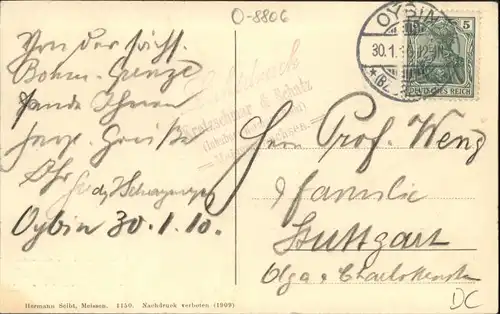 O-8806
OYBIN
30.1.10
5
DEUTSCHES REICH
Von der sächs.
Böhm. Grenze
sende Ihnen
herzl. Grüße
Ihr
Oybin 30.1.10.
Kretzschmar & Schatz
Herrn Prof. Weng
& Familie
Stuttgart
Olga & Charlottenstr
DC
Hermann Seibt, Meissen. 1150. Nachdruck verboten (1909)